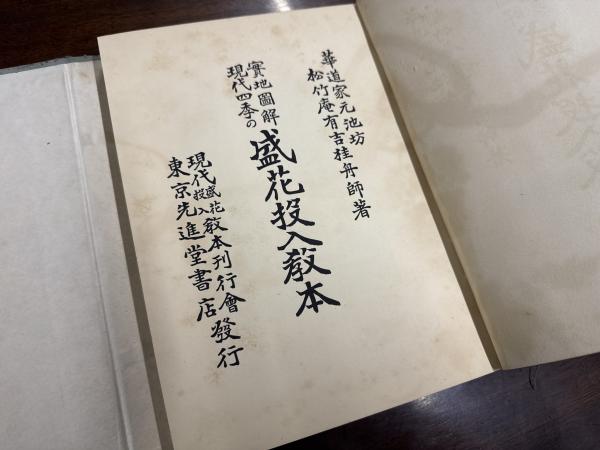 華道家元池坊
松竹庵有吉桂舟師著
實地圖解
現代四季の
盛花投入教本
現代盛花投入教本刊行會發行
東京先進堂書店